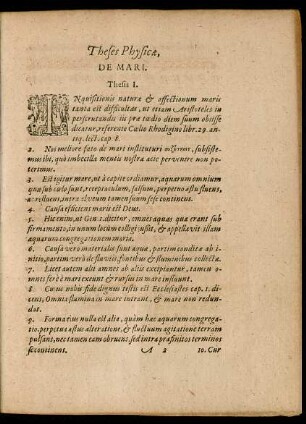 Theses Physicæ,
DE MARI.
Thesis I.
INquisitionis naturæ & affectionum maris
tanta est difficultas, ut etiam Aristoteles in
perscrutandis iis præ tædio diem suum obiisse
dicatur, referente Cælio Rhodigino libr. 29. an-
tiq. lect. cap. 8.
2. Nos meliore fato de mari instituturi subsiste-
mus ibi, quò imbecilla mentis nostræ acie pervenire non po-
terimus.
3. Est igitur mare, ut à capite ordiamur, aquarum omnium
quæ sub cælo sunt, receptaculum, salsum, perpetuo æstu fluens,
ac refluens, intra alveum tamen suum sese continens.
4. Causa efficiens maris est Deus.
5. Hic enim, ut Gen. 1. dicitur, omnes aquas quæ erant sub
firmamento, in unum locum collegi jussit, & appellavit illam
aquarum congregationem maria.
6. Causa verò materialis sunt aquæ, partim conditæ ab i-
nitio, partim verò de fluviis, fontibus & fluminibus collectæ.
7. Licet autem alii amnes ab aliis excipiantur, tamen o-
mnes ferè è mari exeunt & rursus in mare influunt.
8. Cujus nobis fide dignus testis est Ecclesiastes cap. 1. di-
cens, Omnia flumina in mare intrant, & mare non redun-
dat.
9. Forma ejus nulla est alia, quàm hæc aquarum congrega-
tio, perpetuo æstus alteratione, & fluctuum agitatione terram
pulsans, nec tamen eam obruens, sed intra præfinitos terminos
se continens.
A 2
10. Cur